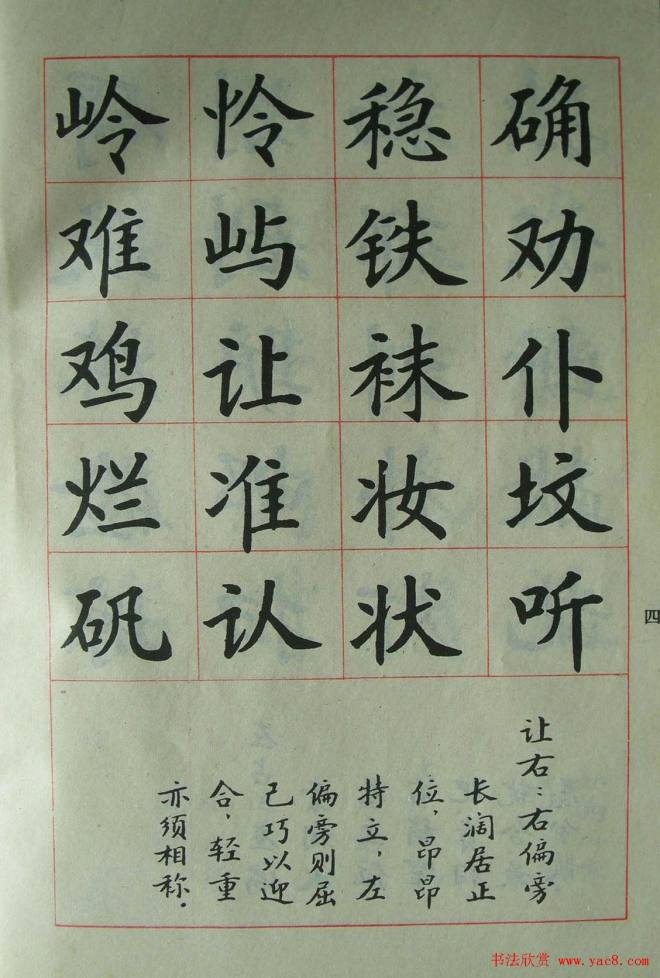 确劝仆坟听
稳铁袜妆状
怜屿让准认
岭难鸡烂矾
让右：右偏旁
长阔居正
位，昂昂
特立，左
偏旁则屈
己巧以迎
合，轻重
亦须相称．
四
书法欣赏 www.yac8.com